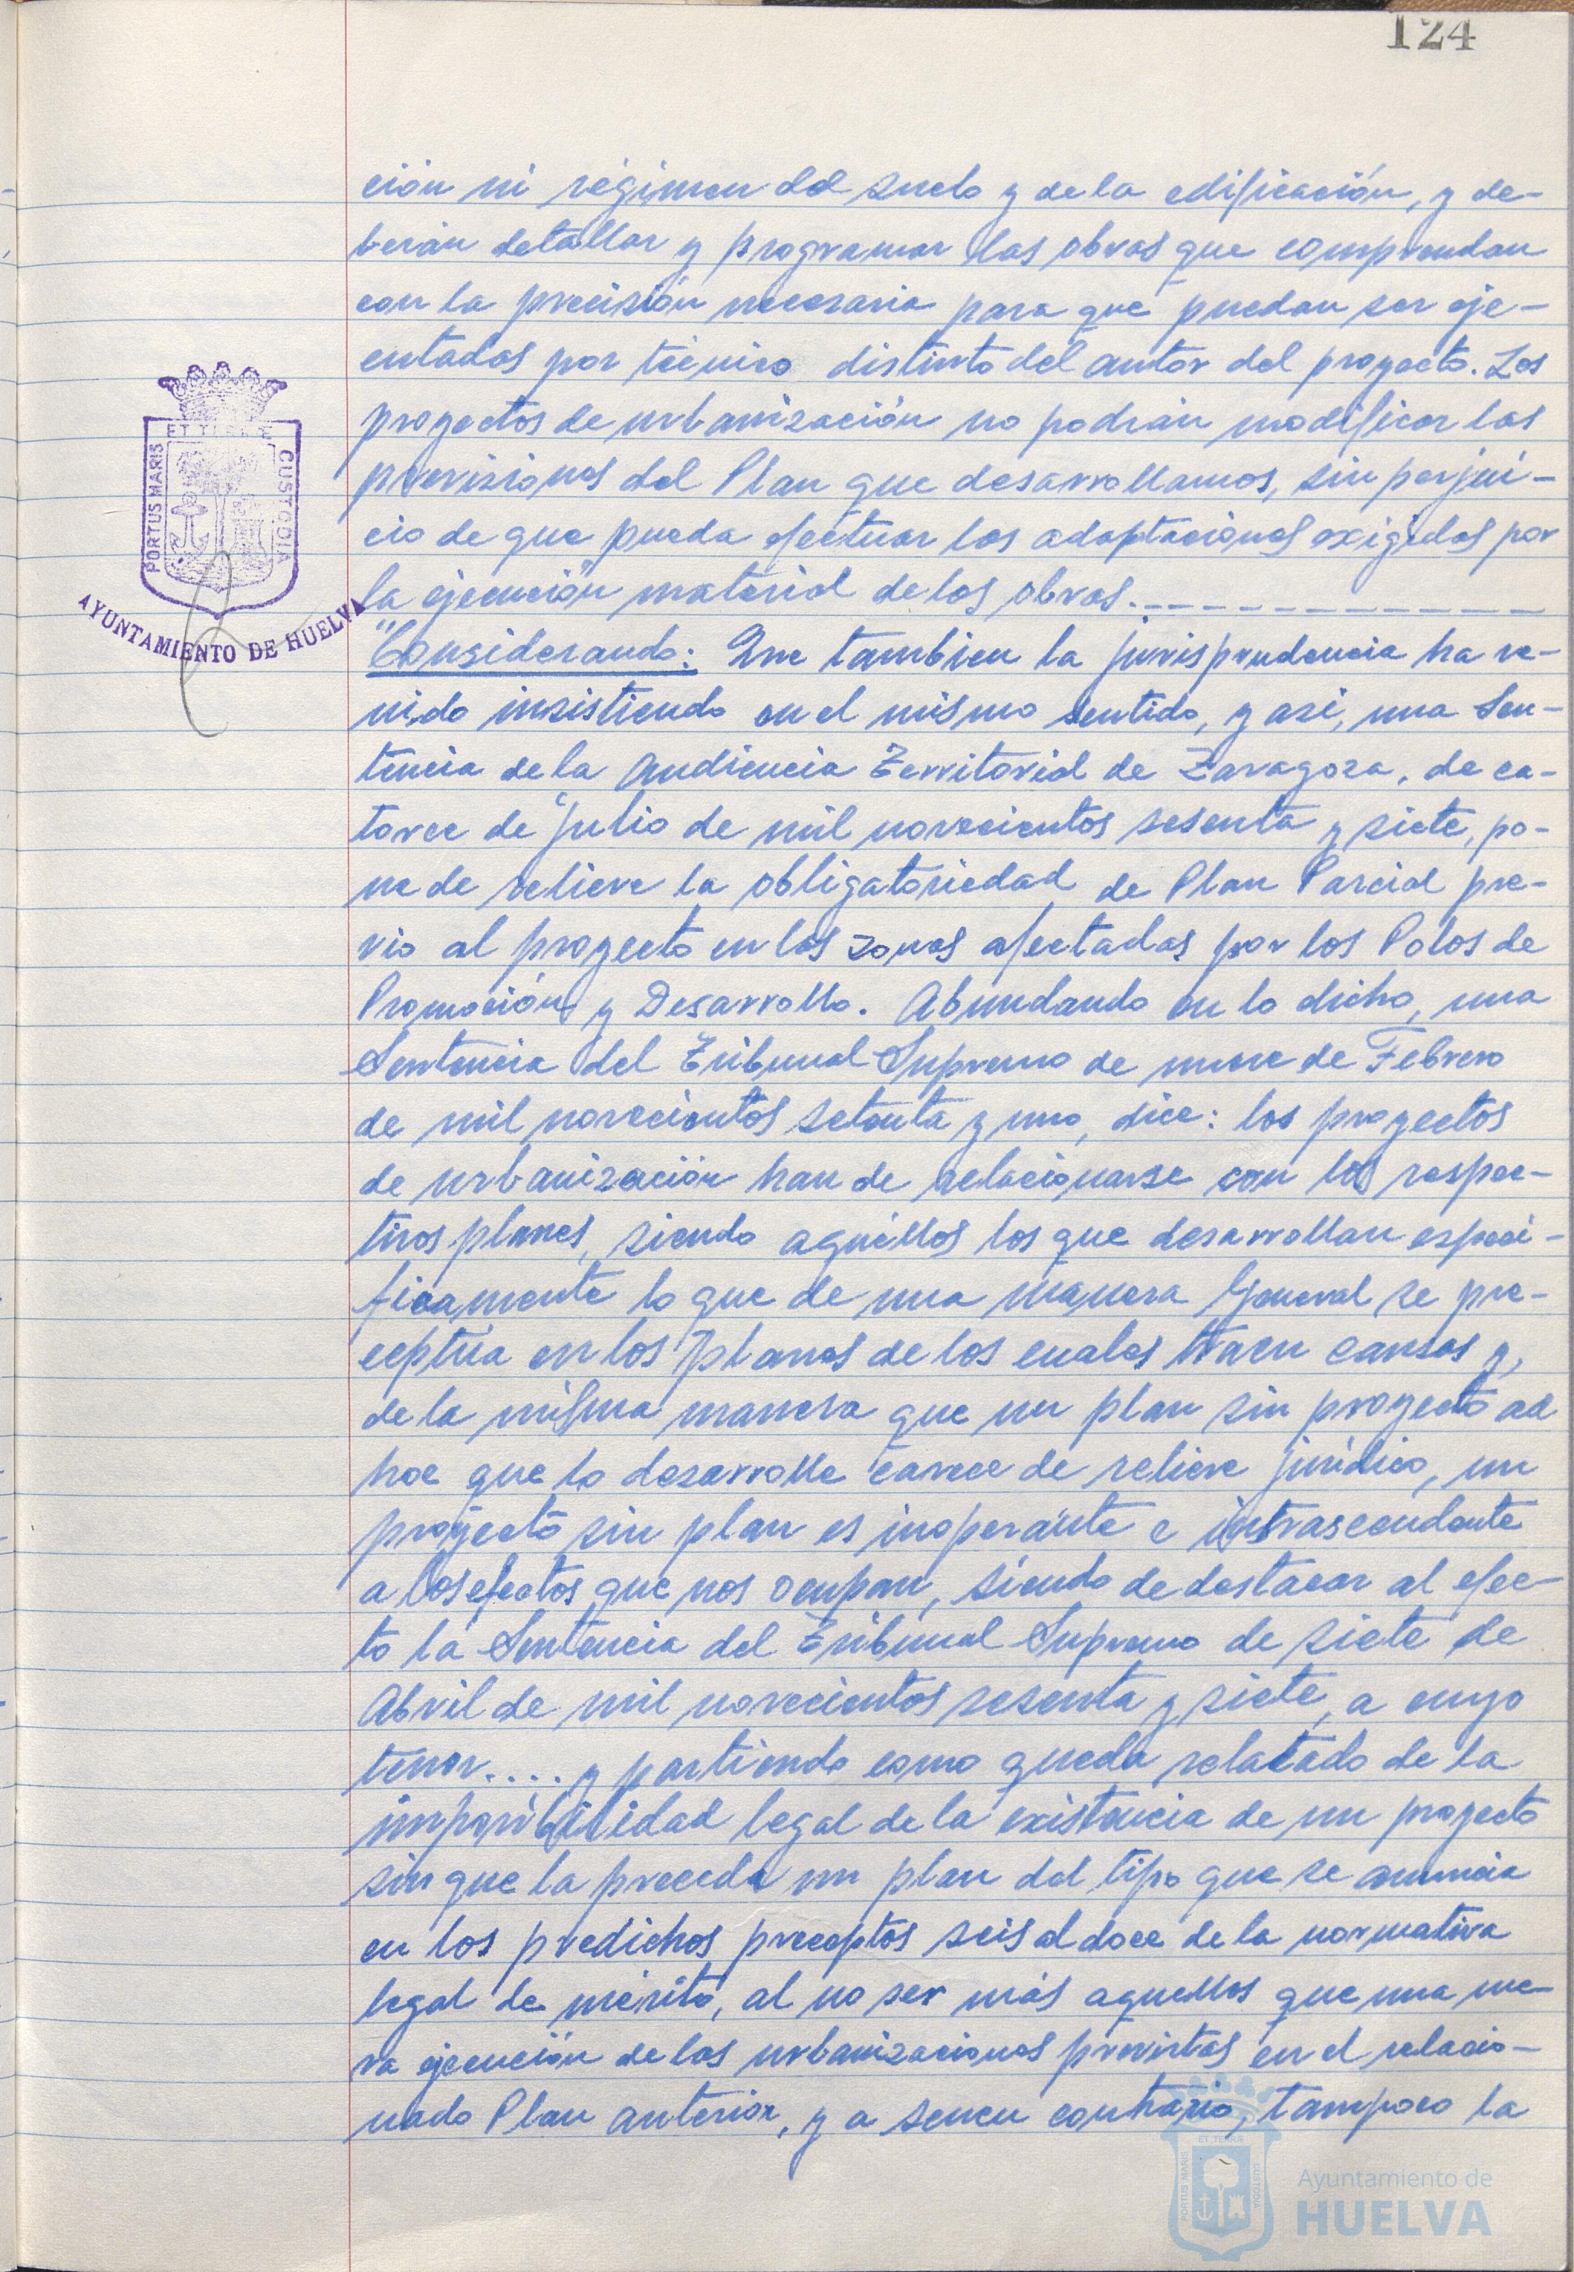 124
ción ni régimen del suelo y de la edificación, y de-
berán detallar y programar las obras que comprendan
con la precisión necesaria para que puedan ser eje-
cutados por técnico distinto del autor del proyecto. Los
proyectos de urbanización no podrán modificar las
previsiones del Plan que desarrollamos, sin perjui-
cio de que pueda efectuar las adaptaciones exigidas por
la ejecución material de las obras.____________
"Considerando: Que tambien la jurisprudencia ha ve-
nido insistiendo en el mismo sentido, y asi, una Sen-
tencia de la Audiencia Territorial de Zaragoza, de ca-
torce de julio de mil novecientos sesenta y siete, po-
ne de relieve la obligatoriedad de Plan Parcial pre-
vio al proyecto en las zonas afectadas por los Polos de
Promoción y Desarrollo. Abundando en lo dicho, una
Sentencia del Tribunal Supremo de nueve de Febrero
de mil novecientos setenta y uno, dice: los proyectos
de urbanización han de relacionarse con los respec-
tivos planes, siendo aquéllos los que desarrollan especi-
ficamente lo que de una manera General se pre-
ceptúa en los planes de los cuales traen causas y,
de la misma manera que un plan sin proyecto ad
hoc que lo desarrolle carece de relieve jurídico, un
proyecto sin plan es inoperante e intrascendente
a los efectos que nos ocupan, siendo de destacar al efec-
to la Sentencia del Tribunal Supremo de siete de
Abril de mil novecientos sesenta y siete, a cuyo
tenor.... y partiendo como queda relatado de la
imposibilidad legal de la existencia de un proyecto
sin que la preceda un plan del tipo que se anuncia
en los predichos preceptos seis al doce de la normativa
legal de mérito, al no ser más aquellos que una me-
ra ejecución de las urbanizaciones previstas en el relacio-
nado Plan anterior, y a sencu contrario, tampoco la
PORTUS MARIS ET TERRE CUSTODIA
AYUNTAMIENTO DE HUELVA
PORTUS MARIS ET TERRE CUSTODIA
Ayuntamiento de
HUELVA